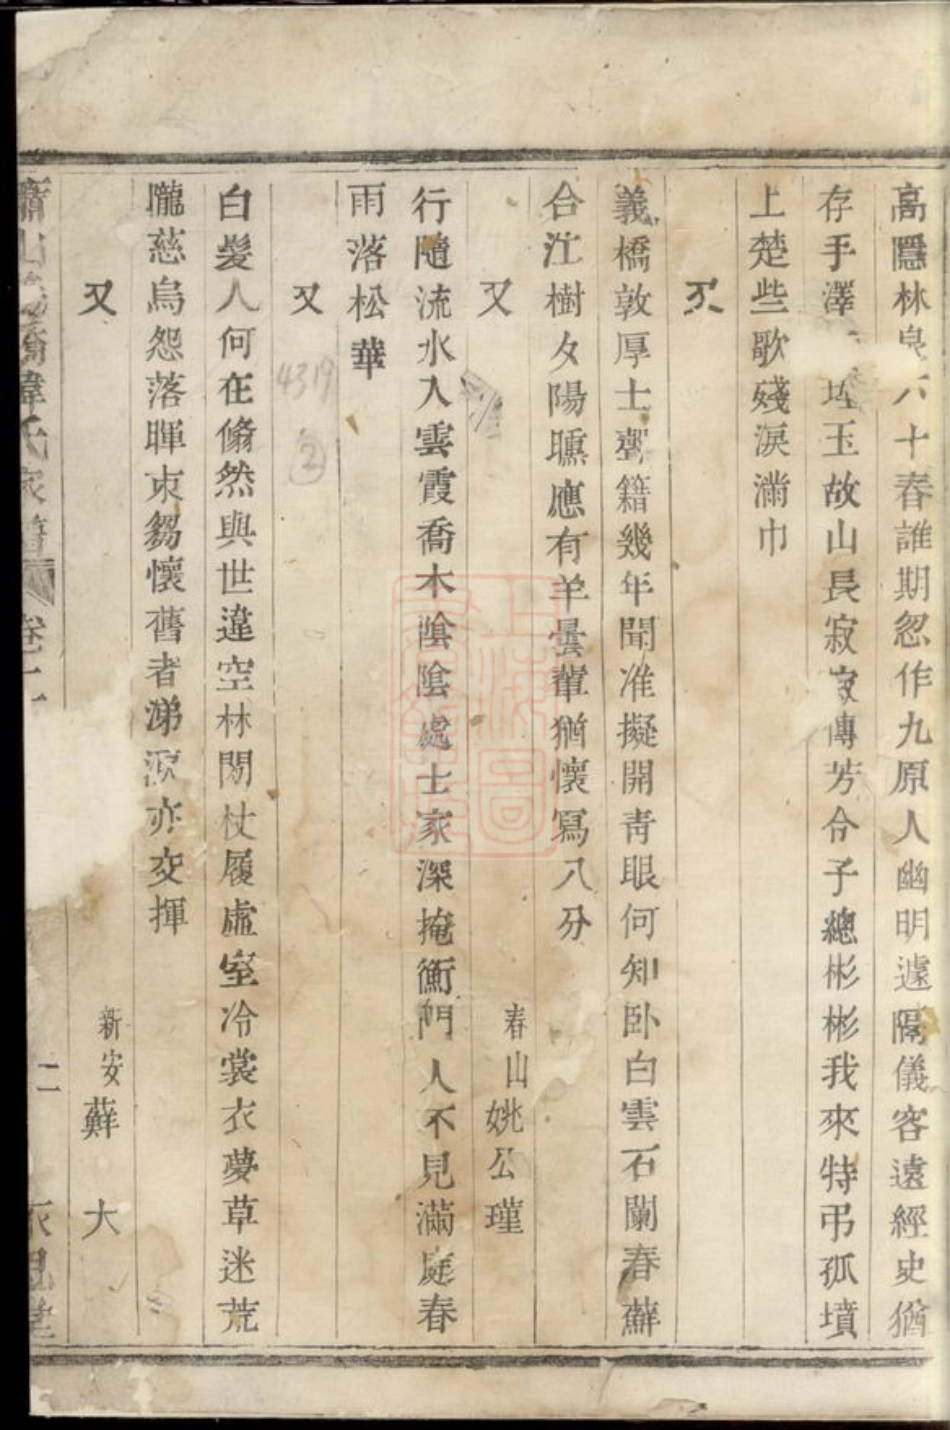 高隱林泉六十春誰期忽作九原人幽明遽隔儀容遠經史猶
存手澤埋玉故山長寂寂傳芳令子總彬彬我來特弔孤墳
上楚些歌殘淚滿巾
又
義橋敦厚士聲籍幾年聞准擬開靑眼何知卧白雲石闌春蘚
合江樹夕陽曛應有羊曇輩猶懷寫八分
又 春山姚公瑾
行隨流水入雲霞喬木陰陰處士家深掩衡門人不見滿庭春
雨落松華
又
4319
②
白髮人何在翛然與世違空林閒杖履虛室冷裳衣夢草迷荒
隴慈烏怨落暉束芻懷舊者涕淚亦交揮
又 新安蘚大
蕭山義橋韓氏家譜 卷十 二 思堂